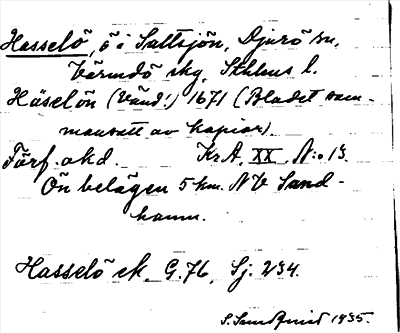 Hasselö, ö i Saltsjön, Djurö sn,
Värmdö skg, Sthlms l.
Häselön (Vänd!) 1671 (Bladet sam-
mansatt av kopior).
Förf. okd. KrA, XX, N:o 13.
Ön belägen 5 km. NV Sand-
hamn.
Hasselö ek. G.76, Sj. 234.
S. Sundquist 1935.